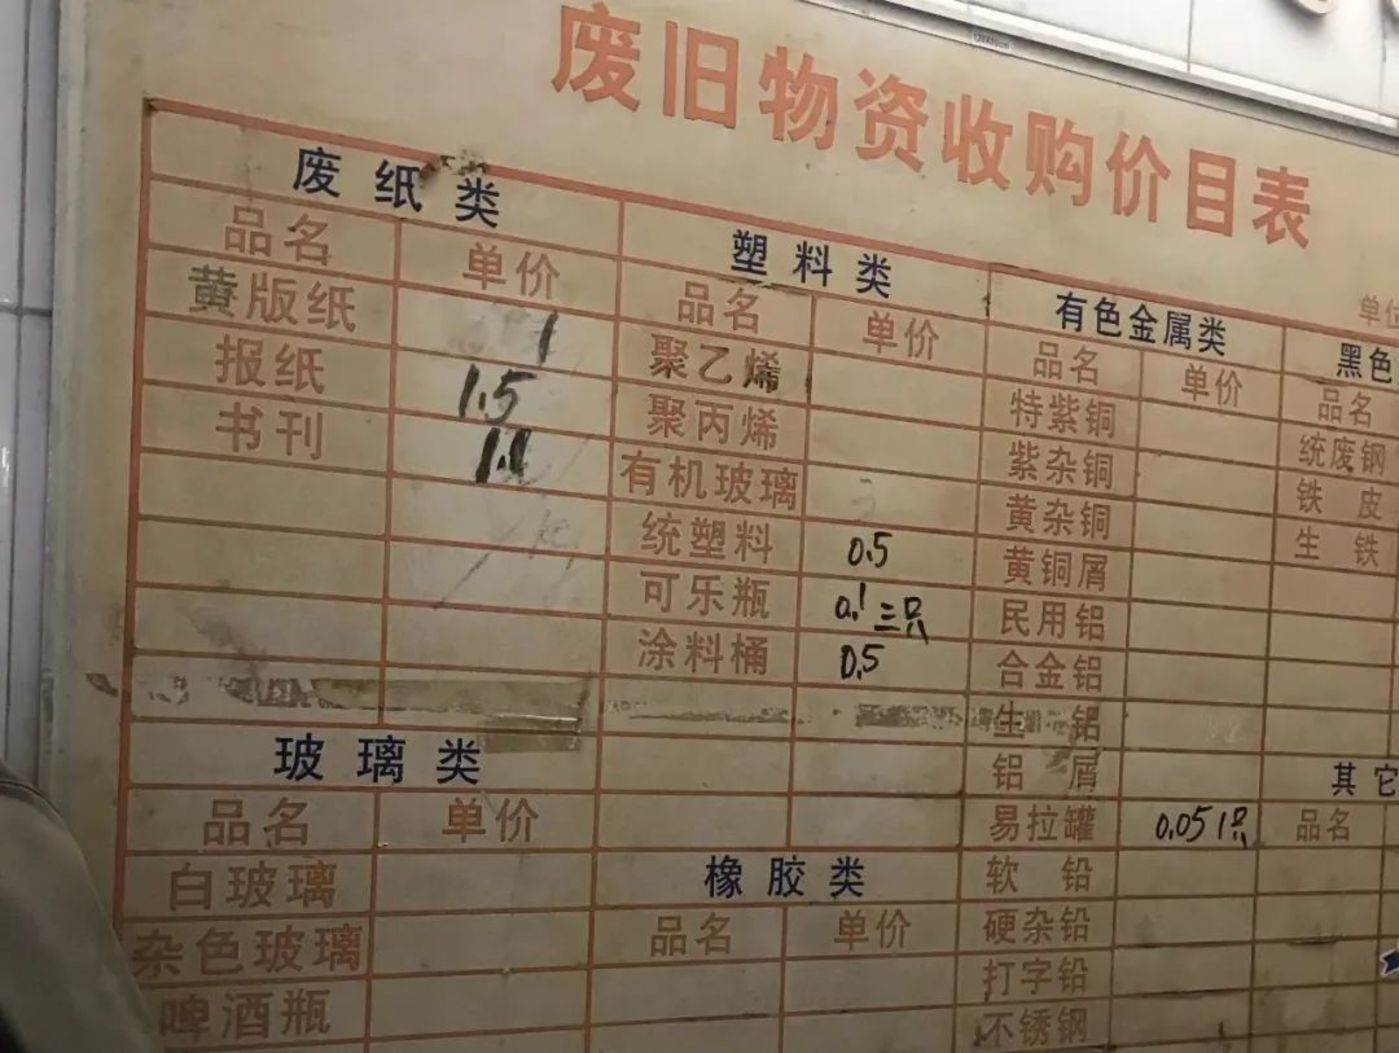 废旧物资收购价目表
废纸类
品名 单价
黄版纸 1
报纸 1.5
书刊 1.1
玻璃类
品名 单价
白玻璃
杂色玻璃
啤酒瓶
塑料类
品名 单价
聚乙烯
聚丙烯
有机玻璃
统塑料 0.5
可乐瓶 0.1三只
涂料桶 0.5
橡胶类
品名 单价
有色金属类
品名 单价
特紫铜
紫杂铜
黄杂铜
黄铜屑
民用铝
合金铝
生铝
铝屑
易拉罐 0.05 1只
软铅
硬杂铅
打字铅
不锈钢
单位
黑色
品名
统废钢
铁皮
生铁
其它
品名